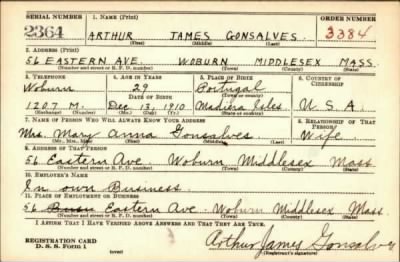 SERIAL NUMBER 1. Name (Print) ORDER NUMBER
2364 ARTHUR JAMES GONSALVES 3384
(First) (Middle) (Last)
2. Address (Print)
56 EASTERN AVE. WOBURN MIDDLESEX MASS.
(Number and street or R. F. D. number) (Town) (County) (State)
3. Telephone 4. Age in Years 5. Place of Birth 6. Country of Citizenship
Woburn 29 Portugal
Date of Birth
1207 M. Dec. 13, 1910 Madiera Isles. U. S. A.
(Exchange) (Number) (Mo.) (Day) (Yr.) (State or country)
7. Name of Person Who Will Always Know Your Address 8. Relationship of That Person
Mrs. Mary Anna Gonsalves. Wife
(Mr., Mrs., Miss) (First) (Middle) (Last)
9. Address of That Person
56 Eastern Ave. Woburn Middlesex Mass
(Number and street or R. F. D. number) (Town) (County) (State)
10. Employer's Name
In own Business.
11. Place of Employment or Business
56 Eastern Ave. Woburn Middlesex Mass.
(Number and street or R. F. D. number) (Town) (County) (State)
I Affirm That I Have Verified Above Answers and That They Are True.
REGISTRATION CARD
D. S. S. Form 1 (over) Arthur James Gonsalves
(Registrant's signature)